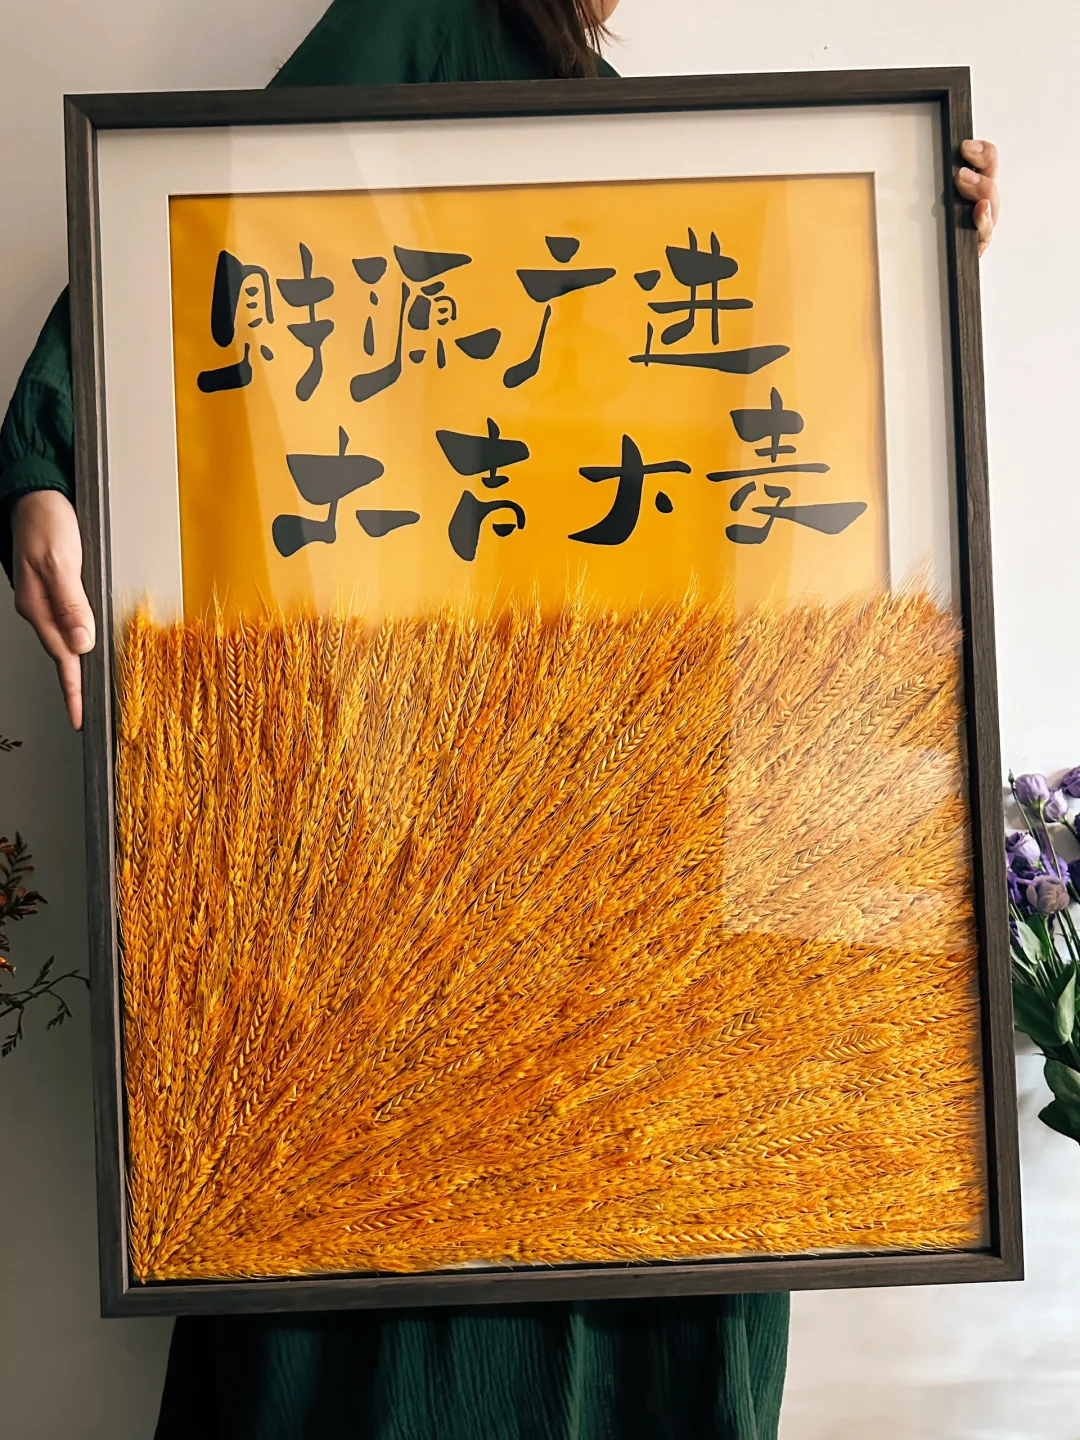 財源广进
大吉大麦